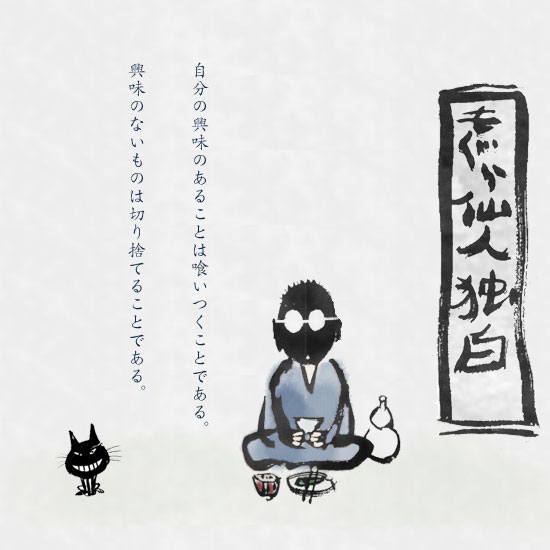 仙人独白
自分の興味のあることは喰いつくことである。
興味のないものは切り捨てることである。